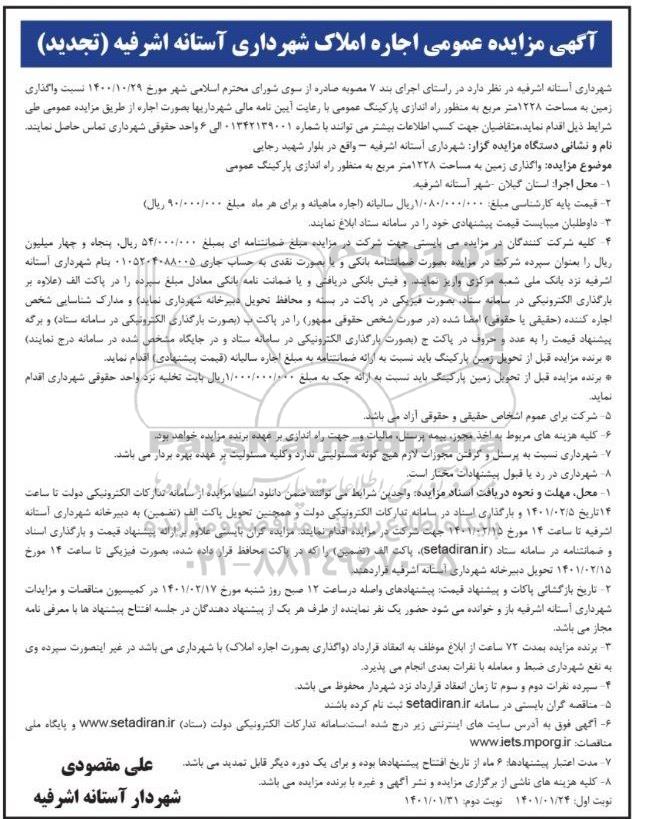 آگهی مزایده عمومی اجاره املاک شهرداری آستانه اشرفیه (تجدید)
شهرداری آستانه اشرفیه در نظر دارد در راستای اجرای بند ۷ مصوبه صادره از سوی شورای محترم اسلامی شهر مورخ ۱۴۰۰/۱۰/۲۹ نسبت واگذاری
زمین به مساحت ۱۲۲۸متر مربع به منظور راه اندازی پارکینگ عمومی با رعایت آیین نامه مالی شهرداریها بصورت اجاره از طریق مزایده عمومی طی
شرایط ذیل اقدام نماید،متقاضیان جهت کسب اطلاعات بیشتر می توانند با شماره ۰۱۳۴۲۱۳۹۰۰۱ الی ۶ واحد حقوقی شهرداری تماس حاصل نمایند.
نام و نشانی دستگاه مزایده گزار: شهرداری آستانه اشرفیه – واقع در بلوار شهید رجایی
موضوع مزایده: واگذاری زمین به مساحت ۱۲۲۸متر مربع به منظور راه اندازی پارکینگ عمومی
۱- محل اجرا: استان گیلان -شهر آستانه اشرفیه.
۲- قیمت پایه کارشناسی مبلغ: ۱/۰۸۰/۰۰۰/۰۰۰ریال سالیانه (اجاره ماهیانه و برای هر ماه مبلغ ۹۰/۰۰۰/۰۰۰ ریال)
۳- داوطلبان میبایست قیمت پیشنهادی خود را در سامانه ستاد ابلاغ نمایند.
۴- کلیه شرکت کنندگان در مزایده می بایستی جهت شرکت در مزایده مبلغ ضمانتنامه ای بمبلغ ۵۴/۰۰۰/۰۰۰ ریال، پنجاه و چهار میلیون
ریال را بعنوان سپرده شرکت در مزایده بصورت ضمانتنامه بانکی و یا بصورت نقدی به حساب جاری ۰۱۰۵۲۰۴۰۸۸۰۰۵ بنام شهرداری آستانه
اشرفیه نزد بانک ملی شعبه مرکزی واریز نمایند. و فیش بانکی دریافتی و یا ضمانت نامه بانکی معادل مبلغ سپرده را در پاکت الف (علاوه بر
بارگذاری الکترونیکی در سامانه ستاد، بصورت فیزیکی در پاکت در بسته و محافظ تحویل دبیرخانه شهرداری نماید) و مدارک شناسایی شخص
اجاره کننده (حقیقی یا حقوقی) امضا شده (در صورت شخص حقوقی ممهور) را در پاکت ب (بصورت بارگذاری الکترونیکی در سامانه ستاد) و برگه
پیشنهاد قیمت را به عدد و حروف در پاکت ج (بصورت بارگذاری الکترونیکی در سامانه ستاد و در جایگاه مشخص شده در سامانه درج نمایند)
* برنده مزایده قبل از تحویل زمین پارکینگ باید نسبت به ارائه ضمانتنامه به مبلغ اجاره سالیانه (قیمت پیشنهادی) اقدام نماید.
* برنده مزایده قبل از تحویل زمین پارکینگ باید نسبت به ارائه چک به مبلغ ۱/۰۰۰/۰۰۰/۰۰۰ریال بابت تخلیه نزد واحد حقوقی شهرداری اقدام
نماید.
۵- شرکت برای عموم اشخاص حقیقی و حقوقی آزاد می باشد.
۶- کلیه هزینه های مربوط به اخذ مجوز، بیمه پرسنل، مالیات و... جهت راه اندازی بر عهده برنده مزایده خواهد بود.
۷- شهرداری نسبت به پرسنل و گرفتن مجوزات لازم هیچ گونه مسئولیتی ندارد وکلیه مسئولیت بر عهده بهره بردار می باشد.
۸- شهرداری در رد یا قبول پیشنهادات مختار است.
۱- محل، مهلت و نحوه دریافت اسناد مزایده: واجدین شرایط می توانند ضمن دانلود اسناد مزایده از سامانه تدارکات الکترونیکی دولت تا ساعت
۱۴تاریخ ۱۴۰۱/۰۲/۵ و بارگذاری اسناد در سامانه تدارکات الکترونیکی دولت و همچنین تحویل پاکت الف (تضمین) به دبیرخانه شهرداری آستانه
اشرفیه تا ساعت ۱۴ مورخ ۱۴۰۱/۰۲/۱۵ جهت شرکت در مزایده اقدام نمایند. مزایده گران بایستی علاوه بر ارائه پیشنهاد قیمت و بارگذاری اسناد
و ضمانتنامه در سامانه ستاد (setadiran.ir)، پاکت الف (تضمین) را که در پاکت محافظ قرار داده شده، بصورت فیزیکی تا ساعت ۱۴ مورخ
۱۴۰۱/۰۲/۱۵ تحویل دبیرخانه شهرداری آستانه اشرفیه قراردهند.
۲- تاریخ بازگشائی پاکات و پیشنهاد قیمت: پیشنهادهای واصله درساعت ۱۲ صبح روز شنبه مورخ ۱۴۰۱/۰۲/۱۷ در کمیسیون مناقصات و مزایدات
شهرداری آستانه اشرفیه باز و خوانده می شود حضور یک نفر نماینده از طرف هر یک از پیشنهاد دهندگان در جلسه افتتاح پیشنهاد ها با معرفی نامه
مجاز می باشد.
۳- برنده مزایده بمدت ۷۲ ساعت از ابلاغ موظف به انعقاد قرارداد (واگذاری بصورت اجاره املاک) با شهرداری می باشد در غیر اینصورت سپرده وی
به نفع شهرداری ضبط و معامله با نفرات بعدی انجام می پذیرد.
۴- سپرده نفرات دوم و سوم تا زمان انعقاد قرارداد نزد شهردار محفوظ می باشد.
۵- مناقصه گران بایستی در سامانه setadiran.ir ثبت نام کرده باشند
۶- آگهی فوق به آدرس سایت های اینترنتی زیر درج شده است:سامانه تدارکات الکترونیکی دولت (ستاد) www.setadiran.ir و پایگاه ملی
مناقصات: www.iets.mporg.ir
۷- مدت اعتبار پیشنهادها: ۶ ماه از تاریخ افتتاح پیشنهادها بوده و برای یک دوره دیگر قابل تمدید می باشد.
۸- کلیه هزینه های ناشی از برگزاری مزایده و نشر آگهی و غیره با برنده مزایده می باشد.
نوبت اول: ۱۴۰۱/۰۱/۲۴ نوبت دوم: ۱۴۰۱/۰۱/۳۱
علی مقصودی
شهردار آستانه اشرفیه